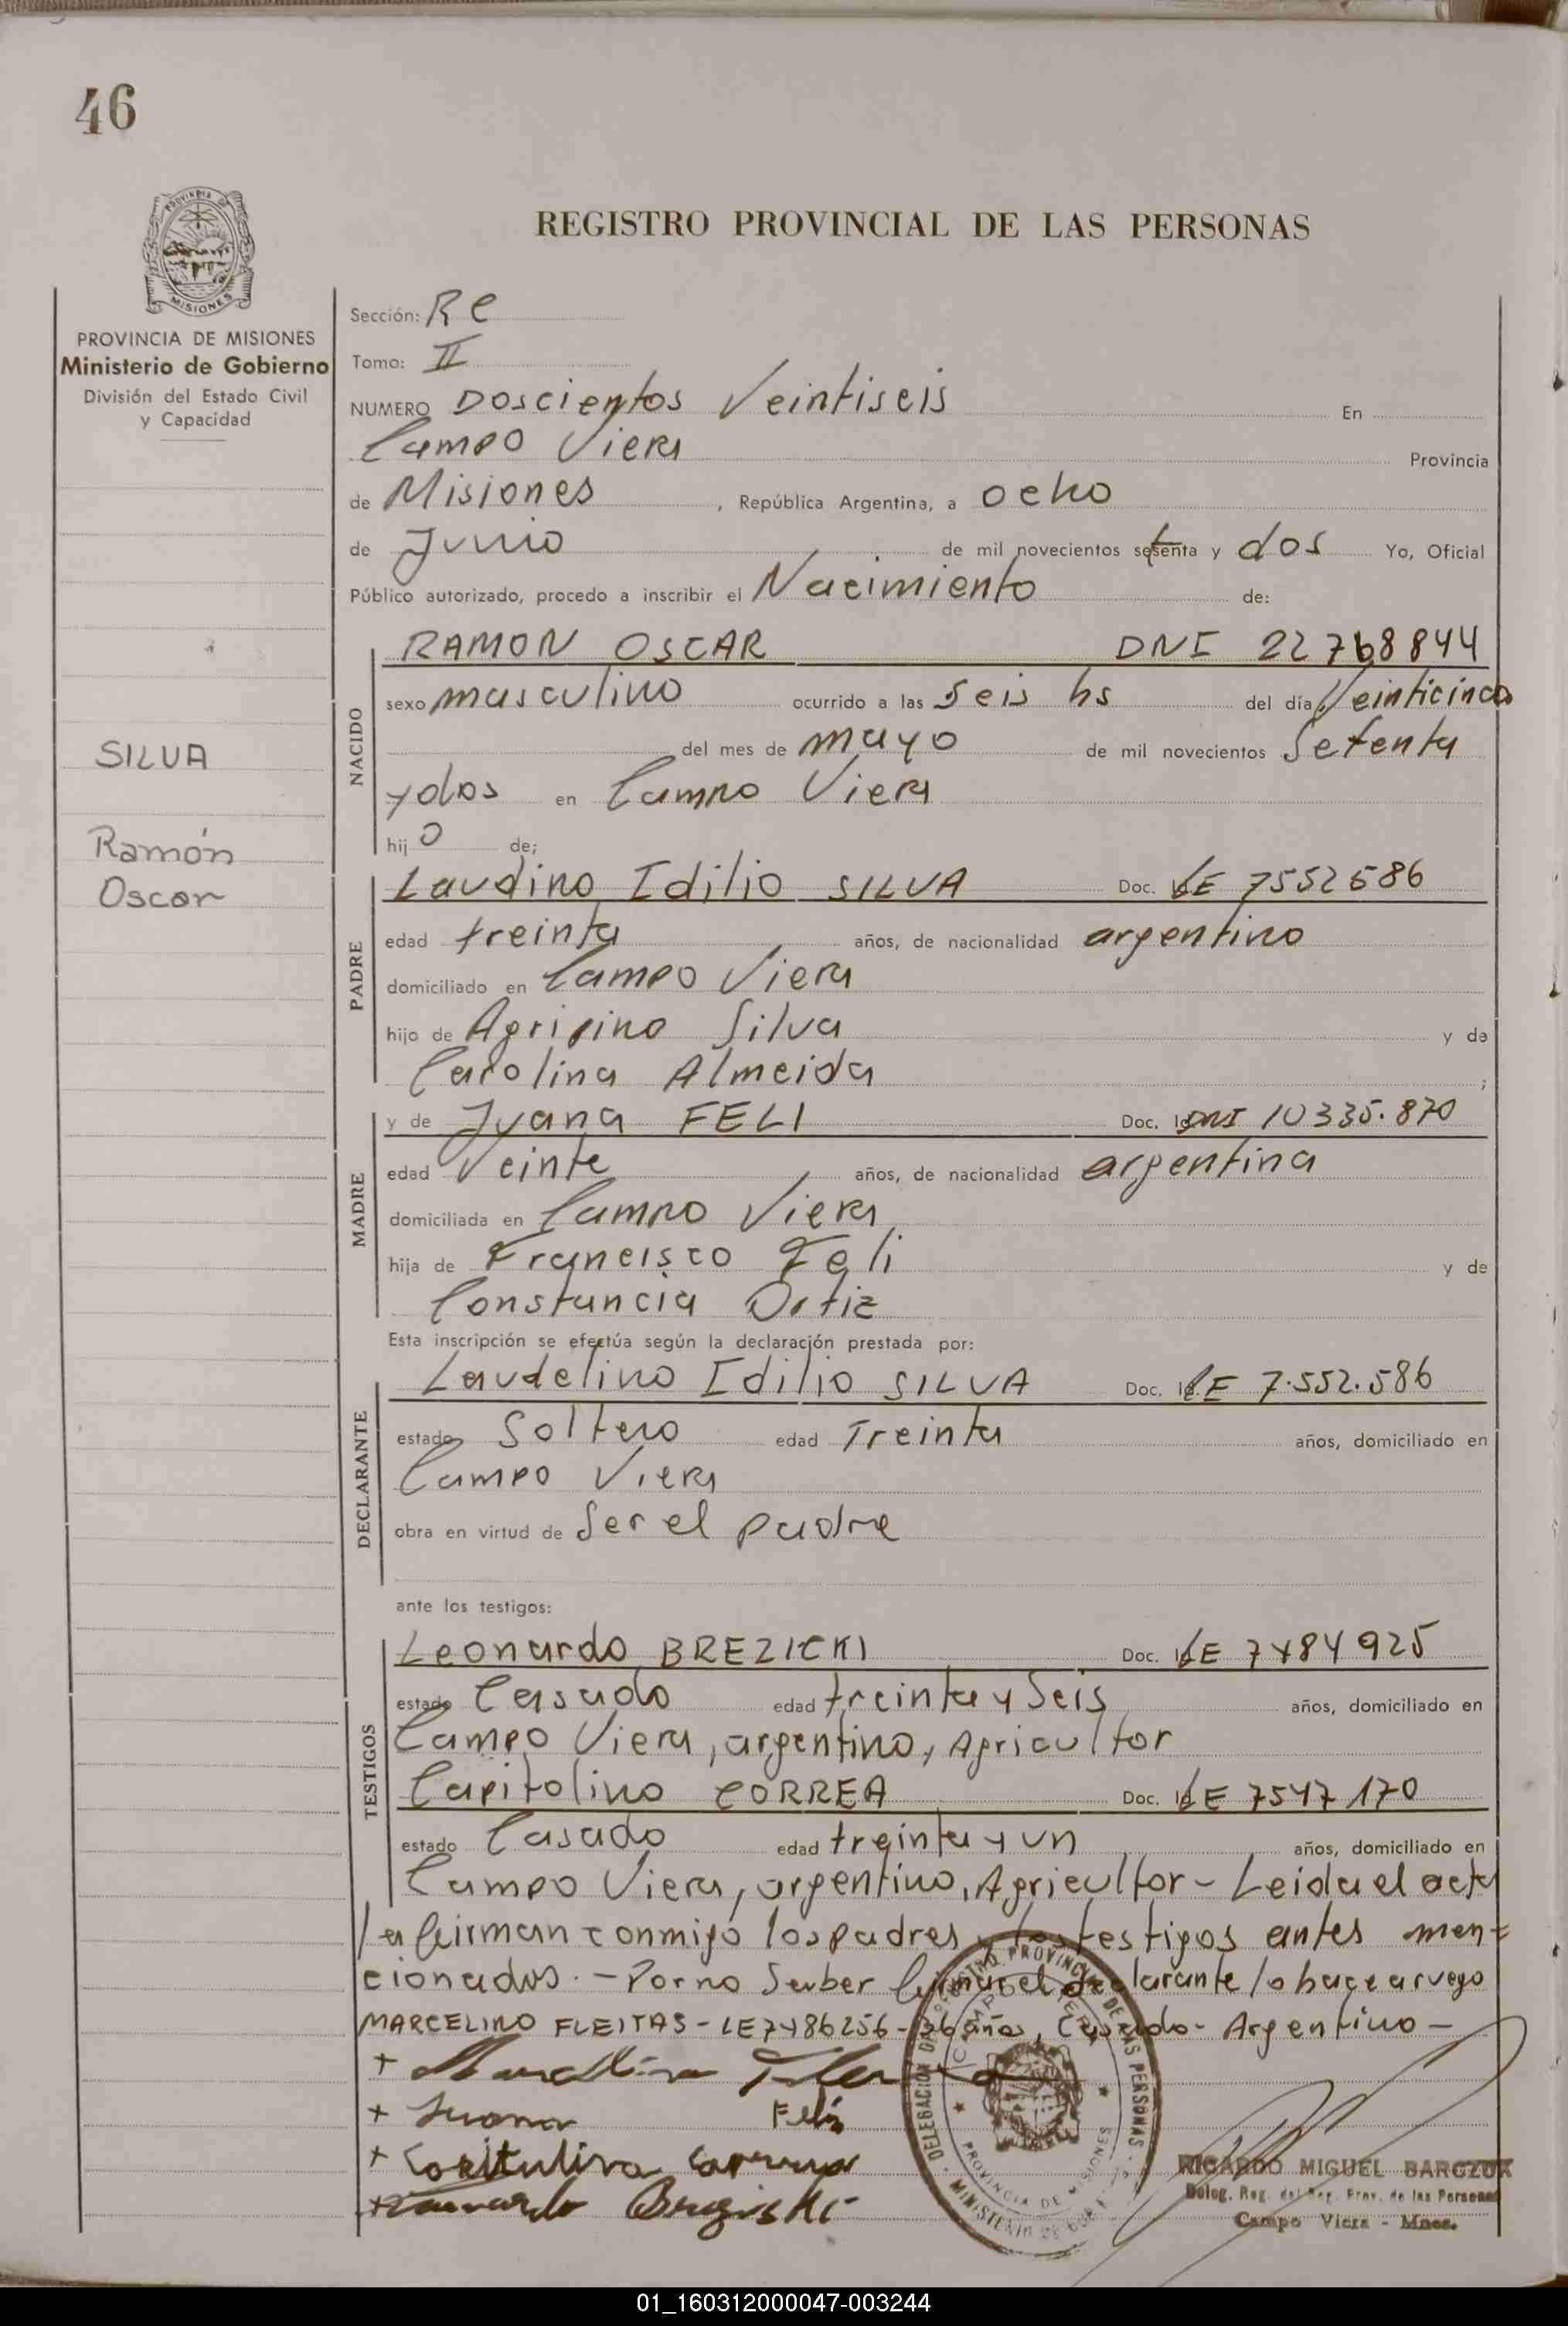 46
REGISTRO PROVINCIAL DE LAS PERSONAS
PROVINCIA
MISIONES
PROVINCIA DE MISIONES
Ministerio de Gobierno
División del Estado Civil
y Capacidad
SILVA
Ramón
Oscar
Sección: Re
Tomo: II
NUMERO Doscientos Veintiseis En
Campo Viera Provincia
de Misiones, República Argentina, a ocho
de Junio de mil novecientos setenta y dos Yo, Oficial
Público autorizado, procedo a inscribir el Nacimiento de:
NACIDO
RAMON OSCAR DNI 22768844
sexo masculino ocurrido a las Seis hs del día Veinticinco
del mes de mayo de mil novecientos Setenta
y dos en Campo Viera
hijo de;
PADRE
Laudino Idilio SILVA Doc. LE 7552586
edad treinta años, de nacionalidad argentino
domiciliado en Campo Viera
hijo de Agripino Silva y de
Carolina Almeida;
MADRE
y de Juana FELI Doc. DNI 10335.870
edad Veinte años, de nacionalidad argentina
domiciliada en Campo Viera
hija de Francisco Feli y de
Constancia Ortiz
Esta inscripción se efectúa según la declaración prestada por:
DECLARANTE
Laudelino Idilio SILVA Doc. LE 7.552.586
estado Soltero edad Treinta años, domiciliado en
Campo Viera
obra en virtud de Ser el padre
ante los testigos:
TESTIGOS
Leonardo BREZICKI Doc. LE 7484925
estado Casado edad treinta y Seis años, domiciliado en
Campo Viera, argentino, Agricultor
Capitolino CORREA Doc. LE 7547170
estado Casado edad treinta y un años, domiciliado en
Campo Viera, argentino, Agricultor - Leida el acta
la firman conmigo los padres y los testigos antes men=
cionados. - Por no Saber firmar el declarante lo hace a ruego
MARCELINO FLEITAS - LE 7486256 - 36 años, Casado - Argentino -
+ Juana Feli
DELEGACION DEL REGISTRO PROVINCIAL DE LAS PERSONAS
CAMPO VIERA
PROVINCIA DE MISIONES
MINISTERIO DE GOBIERNO
RICARDO MIGUEL BARCZUK
Deleg. Reg. del Reg. Prov. de las Personas
Campo Viera - Mnes.
01_160312000047-003244